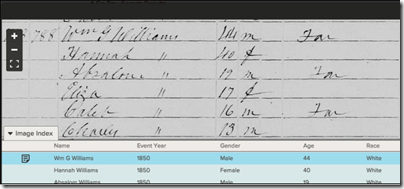 788 Wm G Williams 44 m Far
Hannah " 40 f
Absalom " 19 m Far
Eliza " 17 f
Caleb " 16 m Far
Charles 13 m
Image Index
Name Event Year Gender Age Race
Wm G Williams 1850 Male 44 White
Hannah Williams 1850 Female 40 White
Absalom Williams 1850 Male 19 White